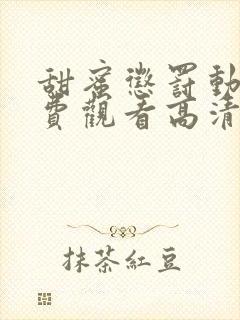 甜蜜懲罰動
費觀看高清
抹茶紅豆